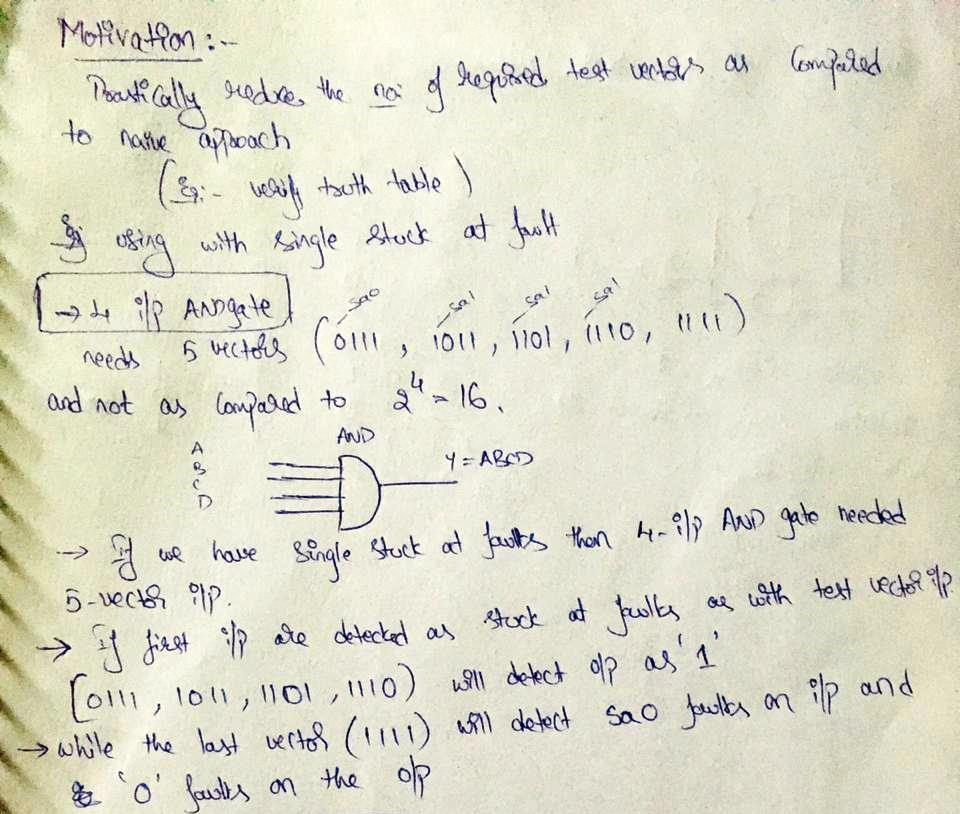 Motivation :-
Drastically reduce the no: of required test vectors as compared
to naive approach
(Eg:- verify truth table)
Eg using with single stuck at fault
→ 4 i/p AND gate
sa0 sa1 sa1 sa1
needs 5 vectors (0111, 1011, 1101, 1110, 1111)
and not as compared to 2^4 = 16.
AND
A
B
C
D
Y = ABCD
→ If we have single stuck at faults then 4-i/p AND gate needed
5-vector i/p.
→ If first i/p are detected as stuck at faults as with test vector i/p
[0111, 1011, 1101, 1110) will detect o/p as '1'
→ while the last vector (1111) will detect sa0 faults on i/p and
'0' faults on the o/p